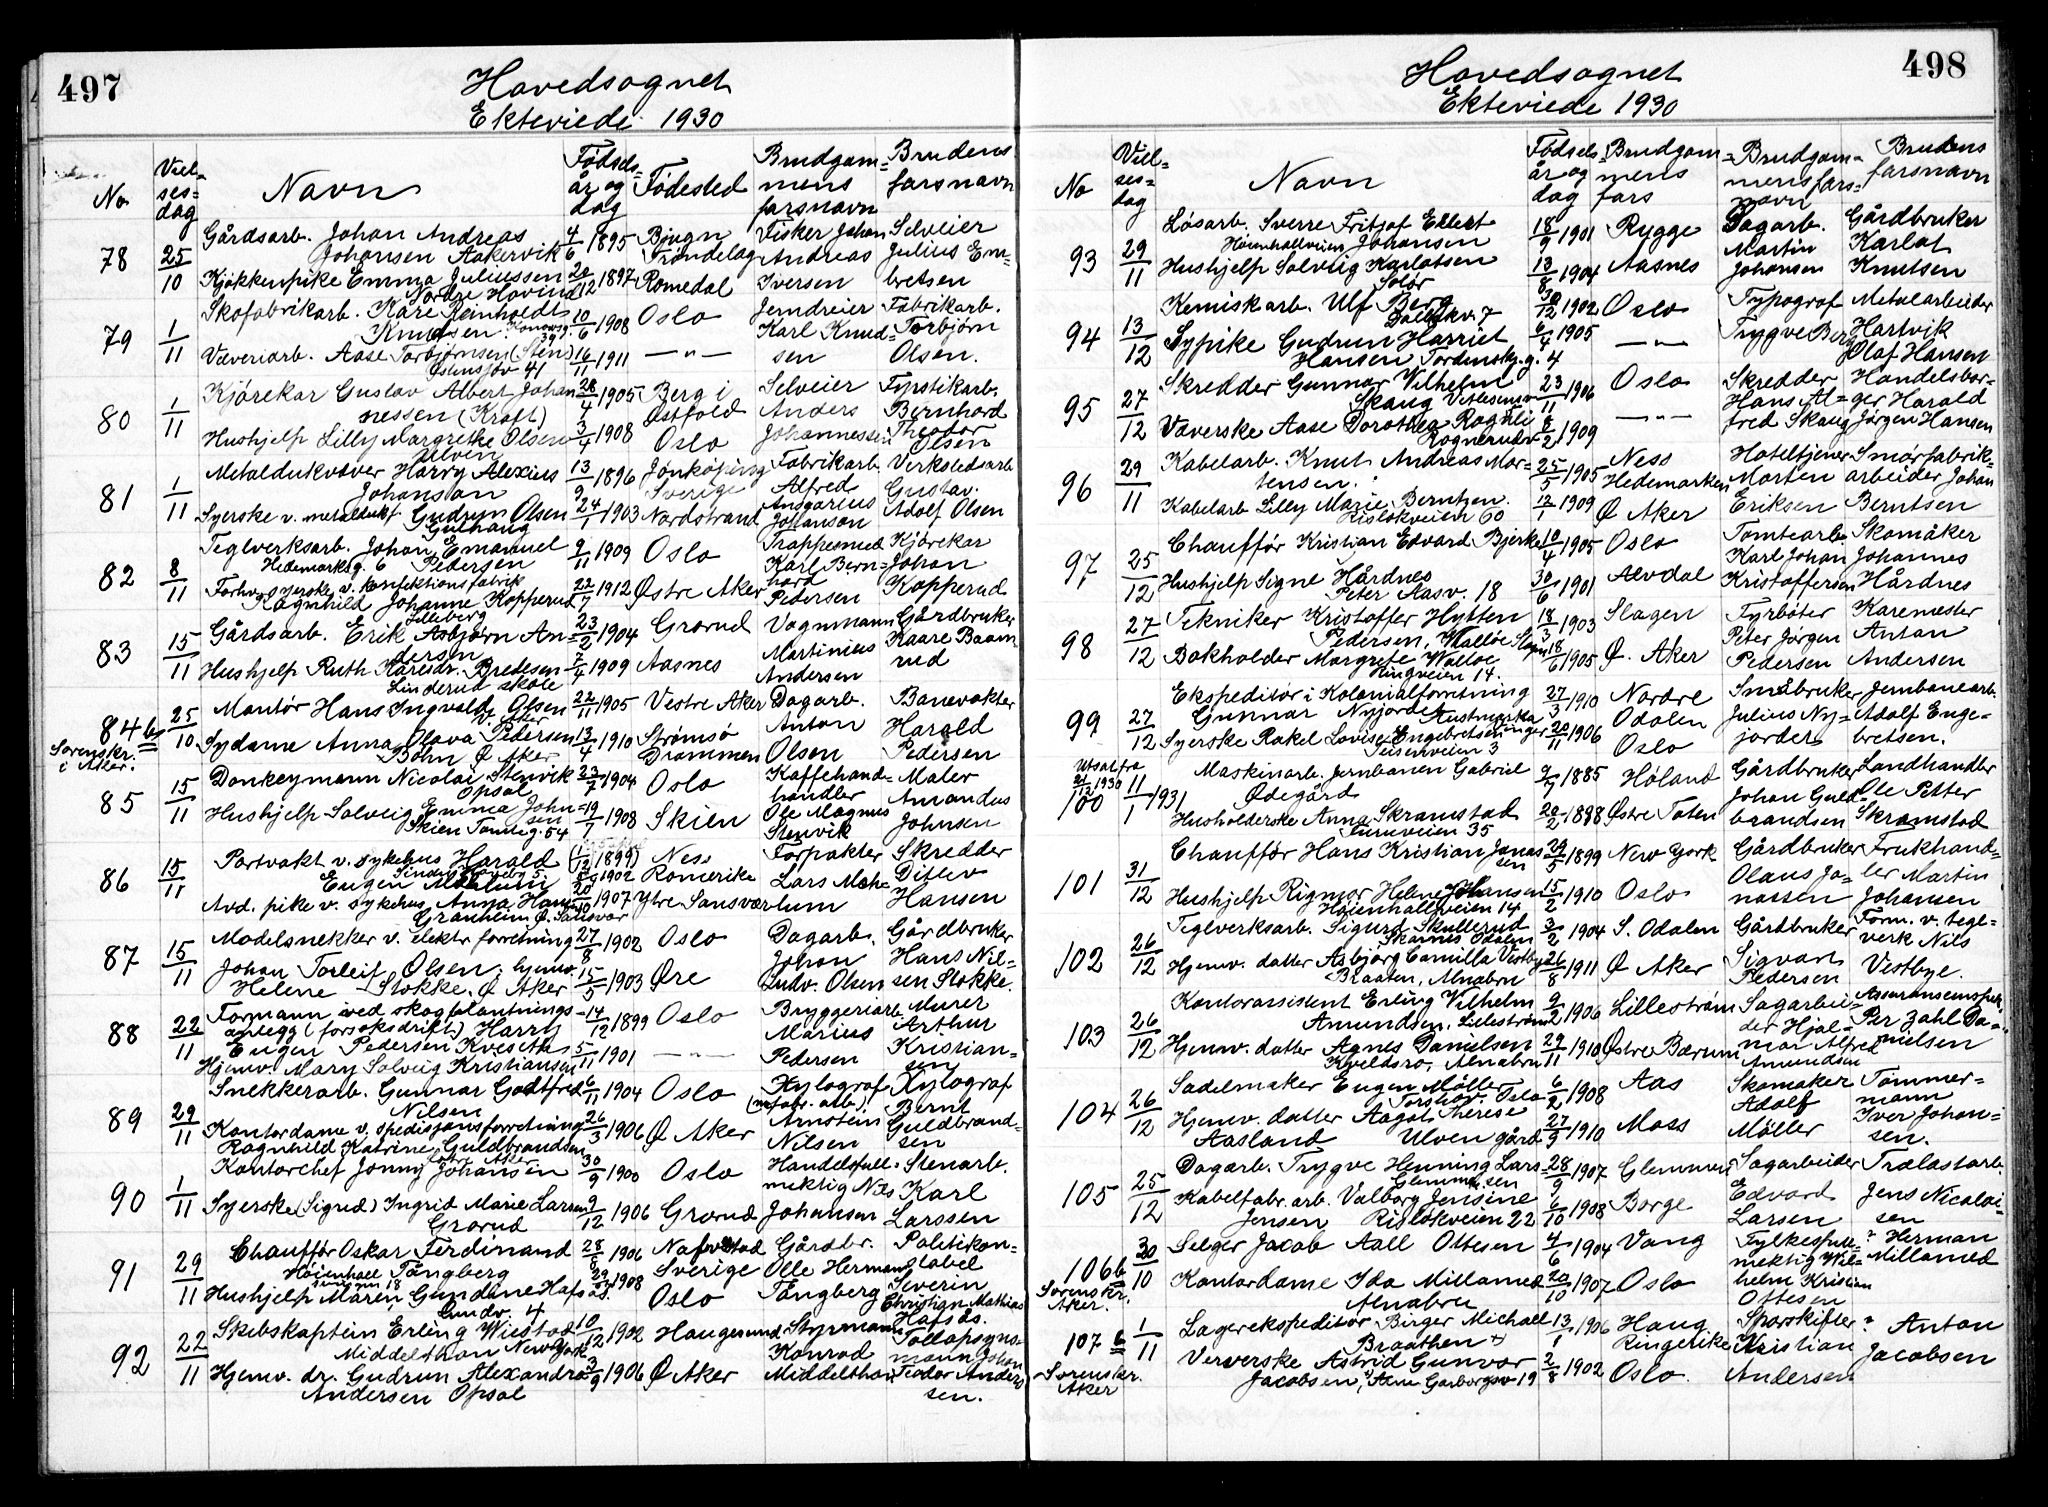 497
Hovedsognet
Ekteviede 1930
No Viel-ses-dag Navn Fødsels-år og dag Fødested Brudgom-mens farsnavn Brudens farsnavn
78 25/10 Gårdsarb. Johan Andreas Johansen Aakervik 4/6 1895 Bjugn Trøndelag Fisker Johan Andreas Iversen Selveier Julius Em-bretsen
Kjøkkenpike Emma Juliussen Nordre Hovind 20/12 1897 Romedal
79 1/11 Skofabrikarb. Kåre Reinholdt Knudsen Konowsg. 39 10/6 1908 Oslo Jerndreier Karl Knud-sen Fabrikarb. Torbjørn Olsen.
Væveriarb. Aase Torbjørnsen (Sten) Østensjøv 41 16/11 1911 — " —
80 1/11 Kjørekar Gustav Albert Johan-nessen (Kraft) 28/4 1905 Berg i Østfold Selveier Anders Johannessen Bernhard Theodor Olsen
Hushjelp Lilly Margrethe Olsen Ulven 3/4 1908 Oslo
81 1/11 Metaldukvæver Harry Alexius Johanson 13/9 1896 Jønkøping Sverige Fabrikarb. Alfred Ansgarius Johanson Verkstedsarb Gustav Adolf Olsen
Syerske v. metalduk Gudrun Olsen Gulhaug 24/1 1903 Nordstrand
82 8/11 Teglverksarb. Johan Emanuel Pedersen Hedemarksg. 6 9/11 1909 Oslo Trappesmed Karl Bern-hard Pedersen Kjørekar Johan Kopperud
Forhv. syerske v. konfektionsfabrik Ragnhild Johanne Kopperud 22/7 1912 Østre Aker
83 15/11 Gårdsarb. Erik Asbjørn An-dersen 23/2 1904 Grorud Vognmann Martinius Andersen Gårdbruker Kaare Baam-rud
Hushjelp Ruth Kåresdr. Bredesen Linderud skole 2/4 1909 Aasnes
84 b 25/10 Sorenskr. i Aker. Montør Hans Ingvald Olsen V. Aker 22/11 1905 Vestre Aker Dagarb. Anton Olsen Banevokter Harald Pedersen
Sydame Anna Olava Pedersen Bøhn Ø Aker 13/4 1910 Strømsø Drammen
85 15/11 Donkeymann Nicolai Stenvik Opsal 23/7 1904 Oslo Kaffehand-handler Ole Magnus Stenvik Maler Amandus Johnsen
Hushjelp Solveig Emmea John-sen Skien Tomteg. 54 19/7 1908 Skien
86 15/11 Portvakt v. sykehus Harald Eugen Mælum (1/12 1899) 1902 Nes Romerike Forpakter Lars Mæhlum Skredder Ditlev Hansen
Avd. pike v. sykehus Anna Hansen Granheim Ø. Sansvær 20/10 1907 Ytre Sansvær
87 15/11 Modelsnekker v. elektr forretning Johan Torleif Olsen. hjemv. 27/8 1902 Oslo Dagarb. Johan Ludv. Olsen Gårdbruker Hans Nil-sen Stokke.
Helene Stokke. Ø Aker 15/5 1903 Øre
88 22/11 Formann ved skogplantnings-anlegg (forsøksdrift) Harry Eugen Pedersen Kveseth 14/12 1899 Oslo Bryggeriarb. Marius Pedersen Murer Arthur Kristian-sen
Hjemv. Mary Solveig Kristiansen 5/11 1901 — " —
89 29/11 Snekkerarb. Gunnar Godtfred Nilsen 6/11 1904 Oslo Xylograf Arnstein Nilsen Xylograf Bernt Guldbrand-sen
Kontordame v. spedisjonsforretning Ragnhild Katrine Guldbrandsen Østre Aker 26/3 1906 Ø Aker
90 1/11 Kontorchef Jonny Johansen 30/9 1900 Oslo Handelsfull-mektig Nils Johansen Stenarb. Karl Larssen
Syerske (Sigrid) Ingrid Marie Larsen Grorud 9/12 1906 Grorud
91 29/11 Chauffør Oskar Ferdinand Tångberg Høienhall 28/5 1906 Sverige Gårdbr. Olle Herman Tångberg Politikon-stabel Severin Christian Mathias Hafsås.
Hushjelp Maren Gundine Hafsås 29/ 1908 Oslo
92 22/11 Skibskaptein Erling Wiestad Middelthon New York 10/12 1902 Haugesund Styrmann Konrad Middelthon Tollopsyns-mann Johan Teodor Ander-sen.
Hjemv. dr. Gudrun Alexandra Andersen Opsal 3/9 1906 Ø Aker
498
Hovedsognet
Ekteviede 1930
No Viel-ses-dag Navn Fødsels år og dag Brudgom-mens fars Brudgom-mens fars-navn Brudens farsnavn
93 29/11 Løsarb. Sverre Fritjof Ellert Johansen Høienhallveien 18/9 1901 Rygge Dagarb. Martin Johansen Gårdbruker Karlot Knutsen
Hushjelp Solveig Karlotsen Solør 13/8 1904 Aasnes
94 13/12 Kemiskarb. Ulf Berg 30/12 1902 Oslo Typograf Trygve Berg Metalarbeider Hartvik Olaf Hansen
Sypike Gudrun Harriet Hansen Tordenskj.g. 4 6/4 1905 — " —
95 27/12 Skredder Gunnar Vilhelm Skaug 23/11 1906 Oslo Skredder Hans Al-fred Skaug Handelsbor-ger Harald Jørgen Hansen
Væverske Aase Dorothea Rognli 6/2 1909 — " —
96 29/11 Kabelarb. Knut Andreas Mor-tensen. 25/5 1905 Ness Hedemarken Hoteltjener Morten Eriksen Smørfabrik-arbeider Johan Berntsen
Kabelarb Lilly Marie Berntsen. Risløkveien 60 12/1 1909 Ø Aker
97 25/12 Chauffør Kristian Edvard Bjerke 10/4 1905 Oslo Tomtearb Karl Johan Kristoffersen Skomaker Johannes Hårdnes
Hushjelp Signe Hårdnes Peter Aasv. 18 30/6 1901 Alvdal
98 27/12 Tekniker Kristoffer Hytten Pedersen, Valløe Slagen 18/3 1903 Slagen Fyrbøter Peter Jørgen Pedersen Karemester Anton Andersen
Bokholder Margrete Walløe Ringveien 14. 18/6 1905 Ø. Aker
99 27/12 Ekspeditør i Kolonialforretning Gunnar Nyjordet 27/3 1910 Nordre Odalen Småbruker Julius Ny-jordet Jernbanearb. Adolf Enge-bretsen.
Syerske Rakel Lovise Engebretsen Teisenveien 3 20/11 1906 Oslo
Utsatt fra 21/12 1930
100 11/1 1931 Maskinarb. Jernbanen Gabriel Ødegård 9/7 1885 Høland Gårdbruker Johan Guld-brandsen Landhandler Ole Petter Skramstad
Husholderske Anna Skramstad Fureveien 35 20/2 1888 Østre Toten
101 31/12 Chauffør Hans Kristian Jonas-sen 29/5 1899 New York Gårdbruker Olaus Jo-nassen Frukthand-ler Martin Johansen
Hushjelp Rigmor Helene Johansen Høienhallveien 14 15/2 1910 Oslo
102 26/12 Teglverksarb. Sigurd Skullerud Skarnes Odalen 2/2 1904 S. Odalen Gårdbruker Sigvart Pedersen Form. v. tegl-verk Nils Vestbye.
Hjemv. datter Asbjørg Camilla Vestbye Braaten, Alnabru 26/8 1911 Ø Aker
103 26/12 Kontorassistent Erling Vilhelm Amundsen. Lillestrøm 9/2 1906 Lillestrøm Sagarbei-der Hjal-mar Alfred Amundsen Per Zahl Da-nielsen
Hjemv. datter Agnes Danielsen Kveldsro, Alnabru 29/11 1910 Østre Bærum
104 26/12 Sadelmaker Eugen Møller Torshov. Oslo 6/2 1908 Aas Skomaker Adolf Møller Tømmer-mann Iver Johan-sen.
Hjemv. datter Aagot Therese Aasland Ulven gård 27/9 1910 Moss
105 25/12 Dagarb. Trygve Henning Lars-sen 28/9 1907 Glemmen Sagarbeider Edvard Larsen Trælastarb. Jens Nicolai-sen
Kabelfabr. arb. Valborg Jensine Jensen Risløkveien 22 6/10 1908 Borge
106 b 30/10 Sorenskr. Aker. Selger Jacob Aall Ottesen 4/6 1904 Vang Fylkesfull-mektig Wil-helm Kristian Ottesen ? Herman Millamed
Kontordame Ida Millamed Alnabru 20/10 1907 Oslo
107 b 1/11 Sorenskr. Aker Lagerekspeditør Birger Michael Braathen 13/1 1906 Haug Ringerike Sporskifter Kristian Andersen ? Anton Jacobsen
Ververske Astrid Gunvor Jacobsen, Arne Garborgsv 19 2/8 1902 Oslo.